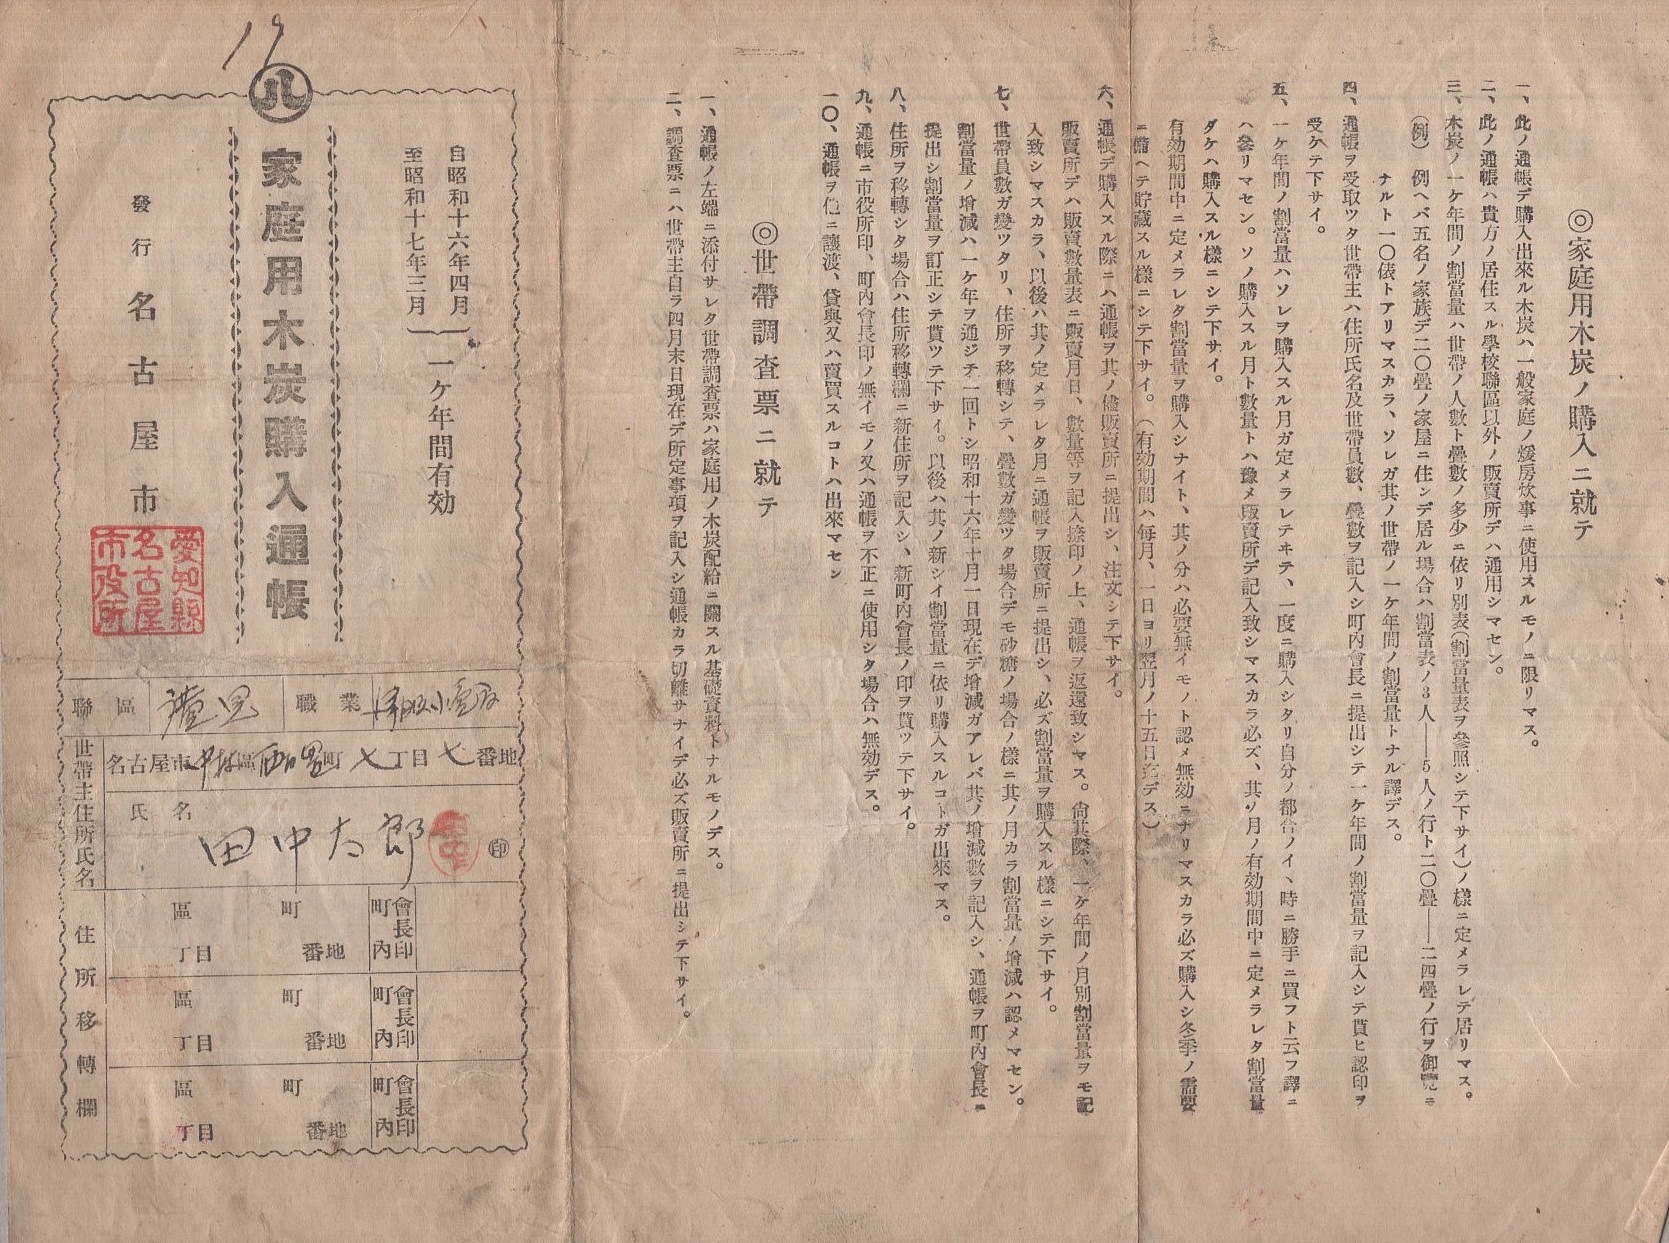 ◎家庭用木炭ノ購入ニ就テ
一、此ノ通帳デ購入出來ル木炭ハ一般家庭ノ煖房炊事ニ使用スルモノニ限リマス。
二、此ノ通帳ハ貴方ノ居住スル學校聯區以外ノ販賣所デハ通用シマセン。
三、木炭ノ一ケ年間ノ割當量ハ世帶ノ人數ト疊數ノ多少ニ依リ別表(割當量表ヲ參照シテ下サイ)ノ樣ニ定メラレテ居リマス。
(例) 例ヘバ五名ノ家族デ二〇疊ノ家屋ニ住ンデ居ル場合ハ割當表ノ3人——5人ノ行ト二〇疊——二四疊ノ行ヲ御覽ニ
ナルト一〇俵トアリマスカラ、ソレガ其ノ世帶ノ一ケ年間ノ割當量トナル譯デス。
四、通帳ヲ受取ツタ世帶主ハ住所氏名及世帶員數、疊數ヲ記入シ町內會長ニ提出シテ一ケ年間ノ割當量ヲ記入シテ貰ヒ認印ヲ
受ケテ下サイ。
五、一ケ年間ノ割當量ハソレヲ購入スル月ガ定メラレテヰテ、一度ニ購入シタリ自分ノ都合ノイヽ時ニ勝手ニ買フト云フ譯ニ
ハ參リマセン。ソノ購入スル月ト數量トハ豫メ販賣所デ記入致シマスカラ必ズ、其ノ月ノ有効期間中ニ定メラレタ割當量
ダケハ購入スル樣ニシテ下サイ。
有効期間中ニ定メラレタ割當量ヲ購入シナイト、其ノ分ハ必要無イモノト認メ無効ニナリマスカラ必ズ購入シ冬季ノ需要
ニ備ヘテ貯藏スル樣ニシテ下サイ。(有効期間ハ每月、一日ヨリ翌月ノ十五日迄デス)
六、通帳デ購入スル際ニハ通帳ヲ其ノ儘販賣所ニ提出シ、注文シテ下サイ。
販賣所デハ販賣數量表ニ販賣月日、數量等ヲ記入捺印ノ上、通帳ヲ返還致シマス。尙其際、一ケ年間ノ月別割當量ヲモ記
入致シマスカラ、以後ハ其ノ定メラレタ月ニ通帳ヲ販賣所ニ提出シ、必ズ割當量ヲ購入スル樣ニシテ下サイ。
七、世帶員數ガ變ツタリ、住所ヲ移轉シテ、疊數ガ變ツタ場合デモ砂糖ノ場合ノ樣ニ其ノ月カラ割當量ノ增減ハ認メマセン。
割當量ノ增減ハ一ケ年ヲ通ジテ一回トシ昭和十六年十月一日現在デ增減ガアレバ其ノ增減數ヲ記入シ、通帳ヲ町內會長ニ
提出シ割當量ヲ訂正シテ貰ツテ下サイ。以後ハ其ノ新シイ割當量ニ依リ購入スルコトガ出來マス。
八、住所ヲ移轉シタ場合ハ住所移轉欄ニ新住所ヲ記入シ、新町內會長ノ印ヲ貰ツテ下サイ。
九、通帳ニ市役所印、町內會長印ノ無イモノ又ハ通帳ヲ不正ニ使用シタ場合ハ無効デス。
一〇、通帳ヲ他ニ讓渡、貸與又ハ賣買スルコトハ出來マセン
◎世帶調查票ニ就テ
一、通帳ノ左端ニ添付サレタ世帶調査票ハ家庭用ノ木炭配給ニ關スル基礎資料トナルモノデス。
二、調査票ニハ世帶主自ラ四月末日現在デ所定事項ヲ記入シ通帳カラ切離サナイデ必ズ販賣所ニ提出シテ下サイ。
自昭和十六年四月
至昭和十七年三月
一ケ年間有効
八
家庭用木炭購入通帳
發行 名古屋市
愛知縣
名古屋
市役所
聯區
職業
世帶主住所氏名
名古屋市中村區 町七丁目七番地
氏名
田中太郎
印
住所移轉欄
區 町
丁目 番地
町內會長印
區 町
丁目 番地
町內會長印
區 町
丁目 番地
町內會長印